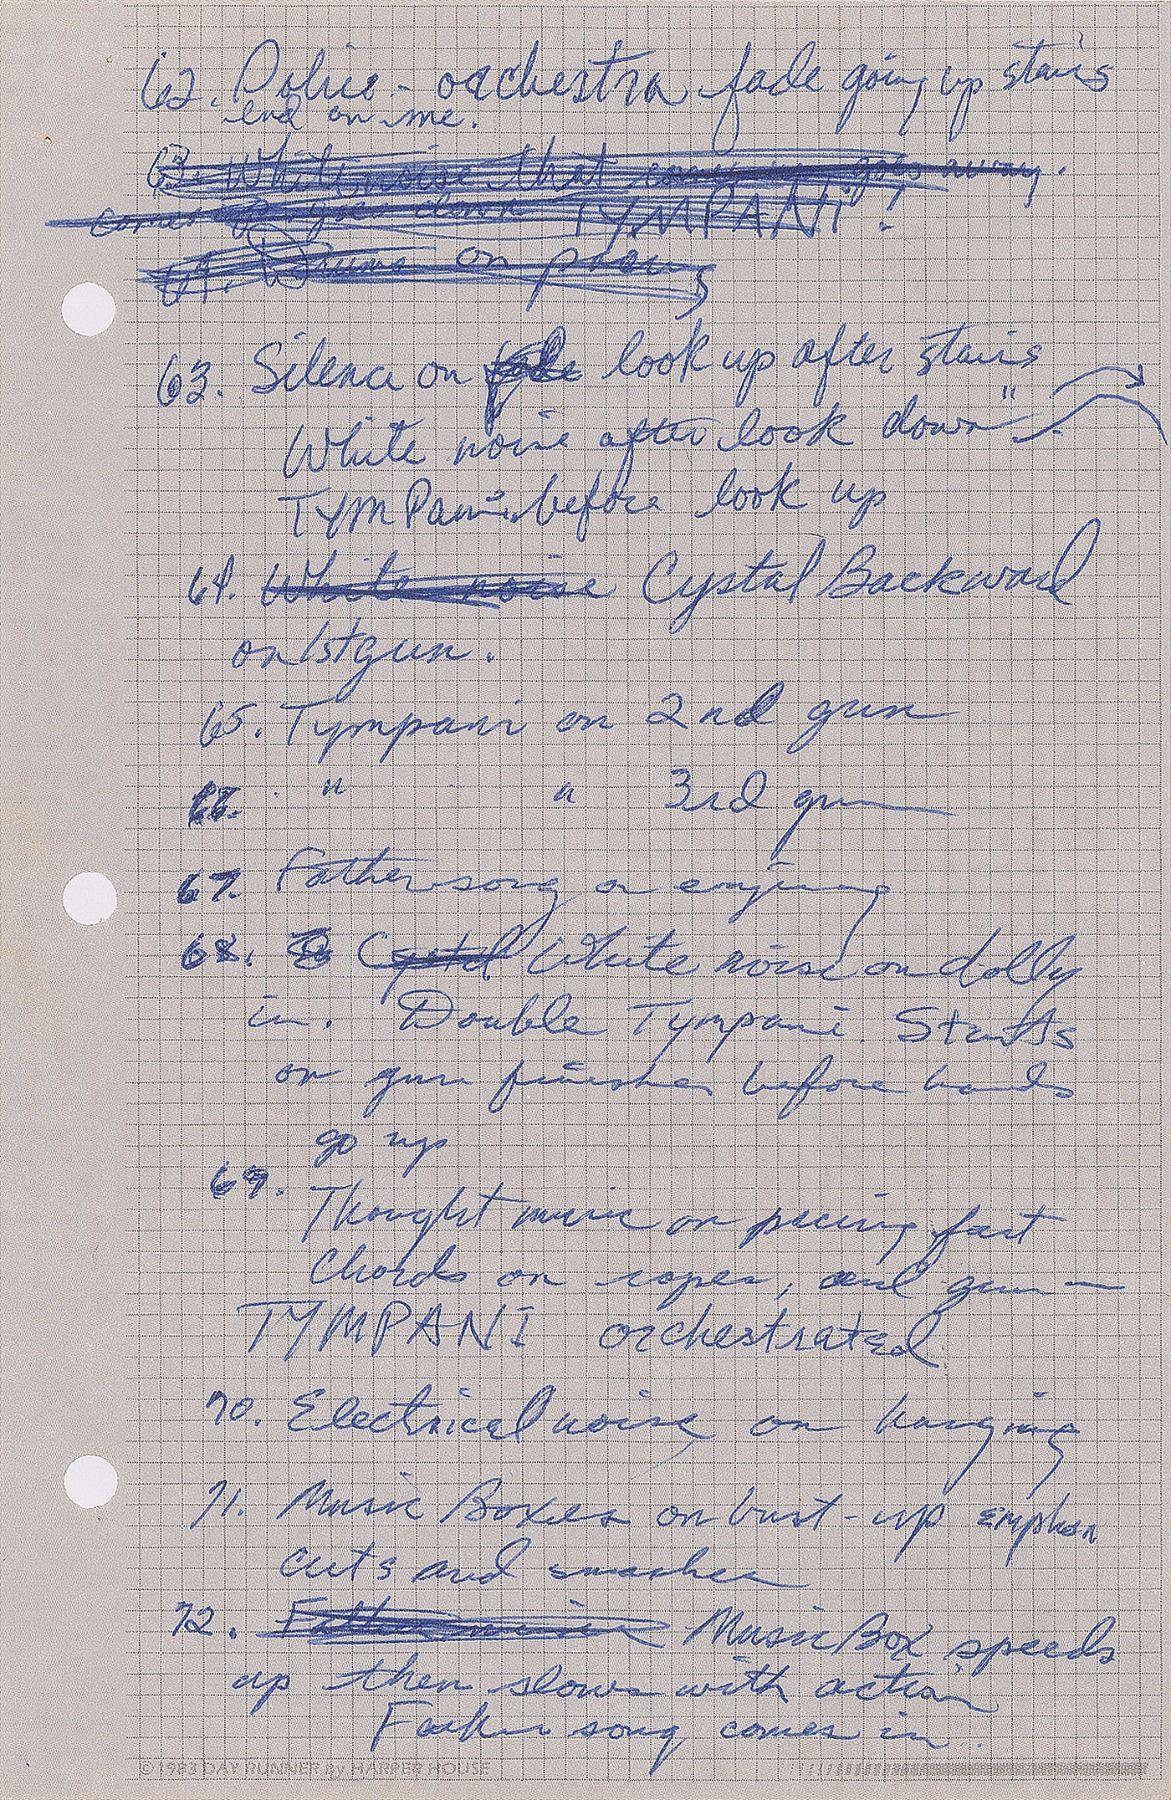 62. Police - orchestra fade going up stairs
end on me.
63. White noise that comes up goes away.
comes up goes down TYMPANI!
64. Drums on pacing
63. Silence on look up after stairs
White noise after look down"
TYMPani before look up
64. White noise Cystal Backward
on 1st gun.
65. Tympani on 2nd gun
66. " " 3rd gun
67. Father song on enjoying
68. Cystal White noise on dolly
in. Double Tympani. Starts
on gun finishes before hands
go up
69.
Thought music on pacing fast
Chords on ropes, and gun —
TYMPANI orchestrated
70. Electrical noise on hanging
71. Music Boxes on bust-up emphasn
cuts and smashes
72. Father music Music Box speeds
up then slows with action
Father song comes in.
©1983 DAY RUNNER by HARPER HOUSE